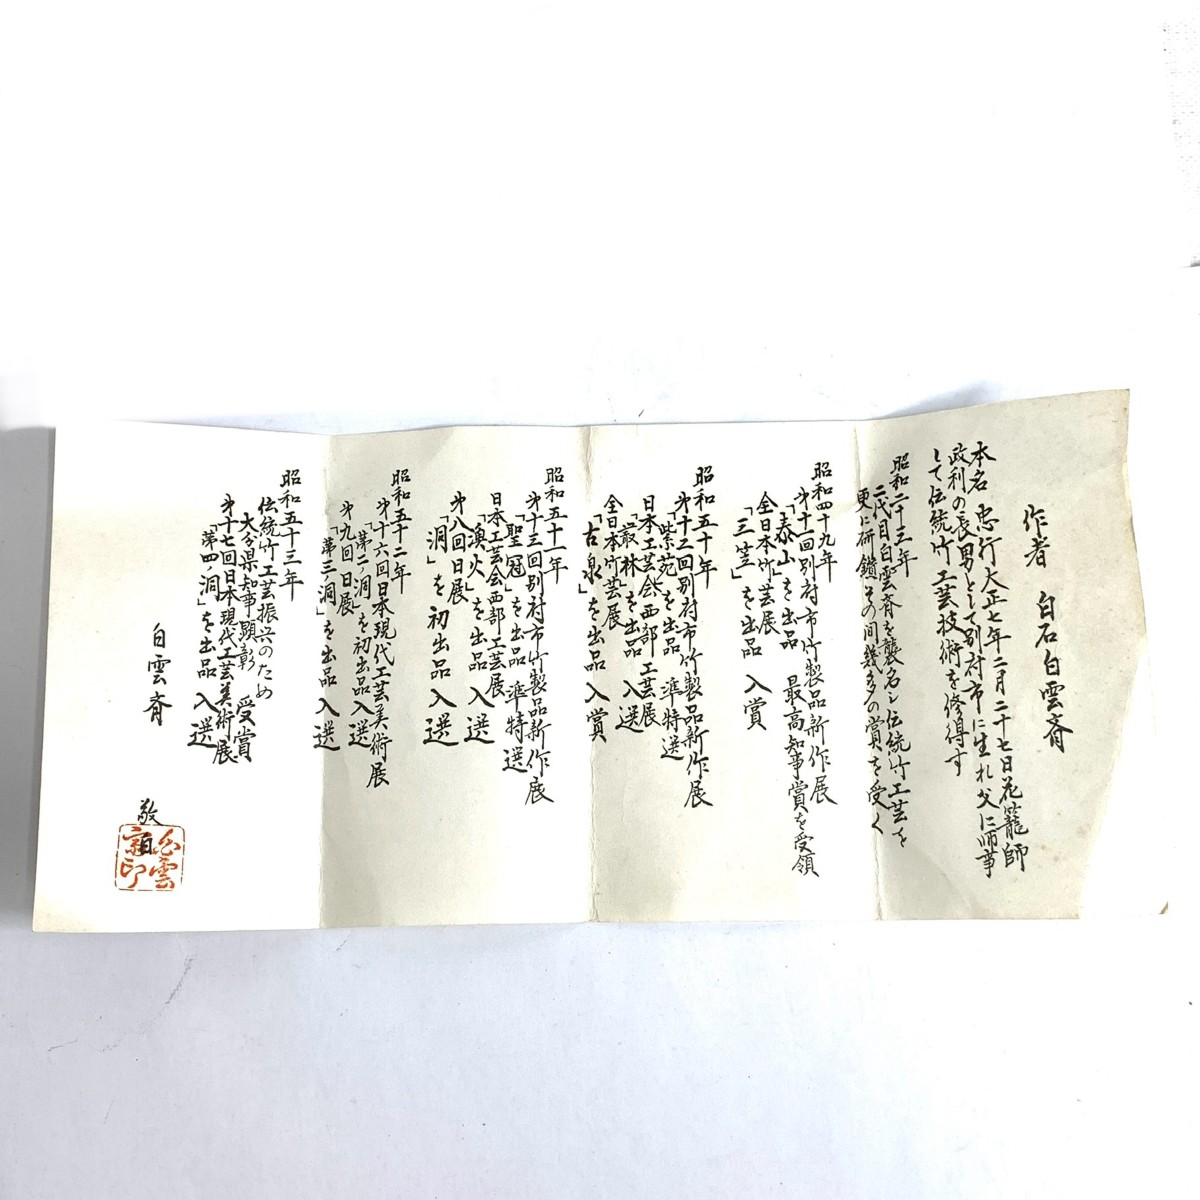 作者 白石白雲斉
本名 忠行 大正七年二月二十七日花籠師
政利の長男として別府市に生れ父に師事
して伝統竹工芸技術を修得す
昭和二十三年
二代目白雲斉を襲名し伝統竹工芸を
更に研鑽その間幾多の賞を受く
昭和四十九年
第十一回別府市竹製品新作展
「泰山」を出品 最高知事賞を受領
全日本竹芸展
「三笠」を出品 入賞
昭和五十年
第十二回別府市竹製品新作展
「紫苑」を出品 準特選
日本工芸会西部工芸展
「叢林」を出品 入選
全日本竹芸展
「古泉」を出品 入賞
昭和五十一年
第十三回別府市竹製品新作展
「聖冠」を出品 準特選
日本工芸会西部工芸展
「漁火」を出品 入選
第八回日展
「洞」を初出品 入選
昭和五十二年
第十六回日本現代工芸美術展
「第二ノ洞」を初出品 入選
第九回日展
「第三ノ洞」を出品 入選
昭和五十三年
伝統竹工芸振興のため
大分県知事顕彰 受賞
第十七回日本現代工芸美術展
「第四ノ洞」を出品 入選
白雲斉
敬白